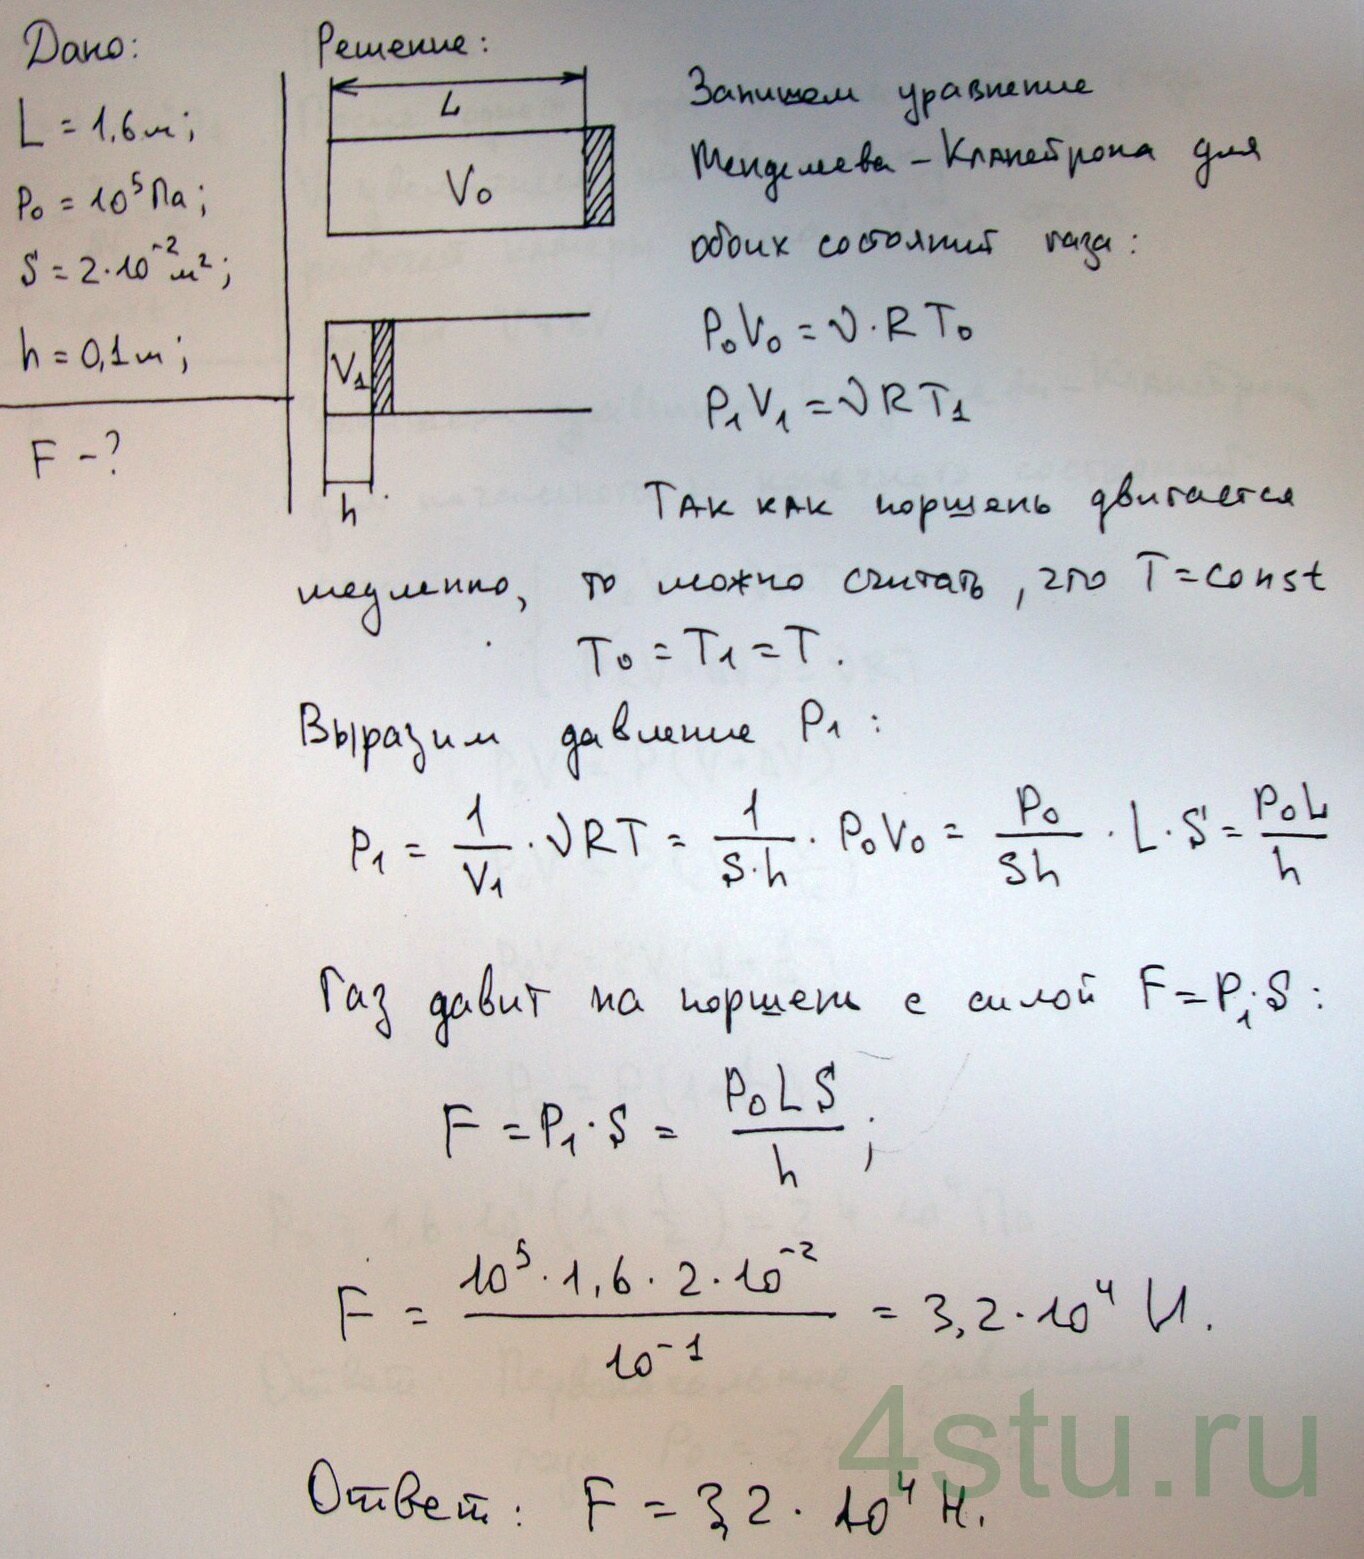 Дано:
L = 1,6 м;
P₀ = 10⁵ Па;
S = 2·10⁻² м²;
h = 0,1 м;
F - ?
Решение:
L
V₀
V₁
h
Запишем уравнение
Менделеева - Клапейрона для
обоих состояний газа:
P₀V₀ = ν·RT₀
P₁V₁ = νRT₁
Так как поршень двигается
медленно, то можно считать, что T = const
T₀ = T₁ = T.
Выразим давление P₁:
P₁ = 1/V₁ · νRT = 1/(S·h) · P₀V₀ = P₀/(Sh) · L·S = P₀L/h
Газ давит на поршень с силой F = P₁·S:
F = P₁·S = P₀LS/h;
F = (10⁵·1,6·2·10⁻²)/10⁻¹ = 3,2·10⁴ Н.
Ответ: F = 3,2·10⁴ Н.
4stu.ru